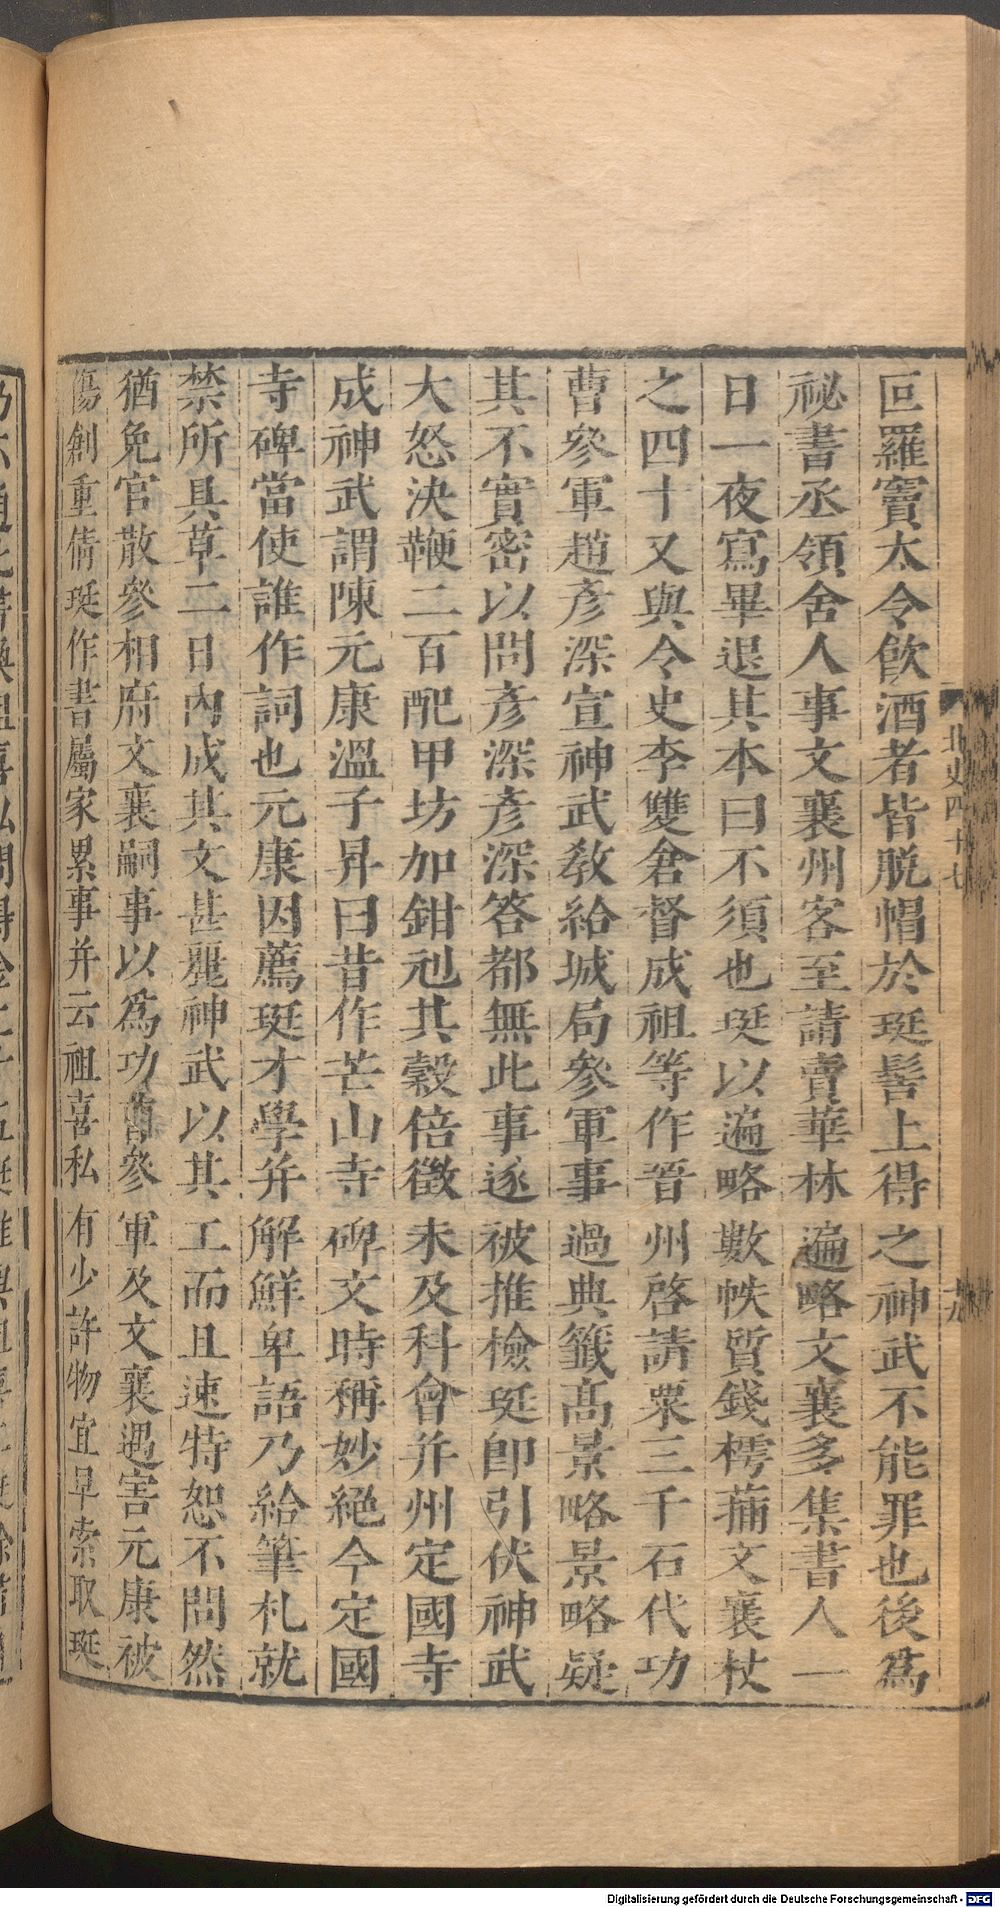 叵羅竇太令飮酒者皆脱帽於珽髻上得之神武不能罪也後爲
祕書丞領舍人事文襄州客至請賣華林遍略文襄多集書人一
日一夜寫畢退其本曰不須也珽以遍略數帙質錢樗蒱文襄杖
之四十又與令史李雙倉督成祖等作晉州啓請粟三千石代功
曹參軍趙彦深宣神武教給城局參軍事過典籤髙景略景略疑
其不實密以問彦深彦深答都無此事遂被推檢珽卽引伏神武
大怒決鞭二百配甲坊加鉗刦其穀倍徵未及科會并州定國寺
成神武謂陳元康溫子昇曰昔作芒山寺碑文時稱妙絕今定國
寺碑當使誰作詞也元康因薦珽才學并解鮮卑語乃給筆札就
禁所具草二日內成其文甚麗神武以其工而且速特恕不問然
猶免官散參相府文襄嗣事以爲功曹參軍及文襄遇害元康被
傷創重倩珽作書屬家累事并云祖喜私有少許物宜早索取珽
北史四十七
十九
Digitalisierung gefördert durch die Deutsche Forschungsgemeinschaft - DFG